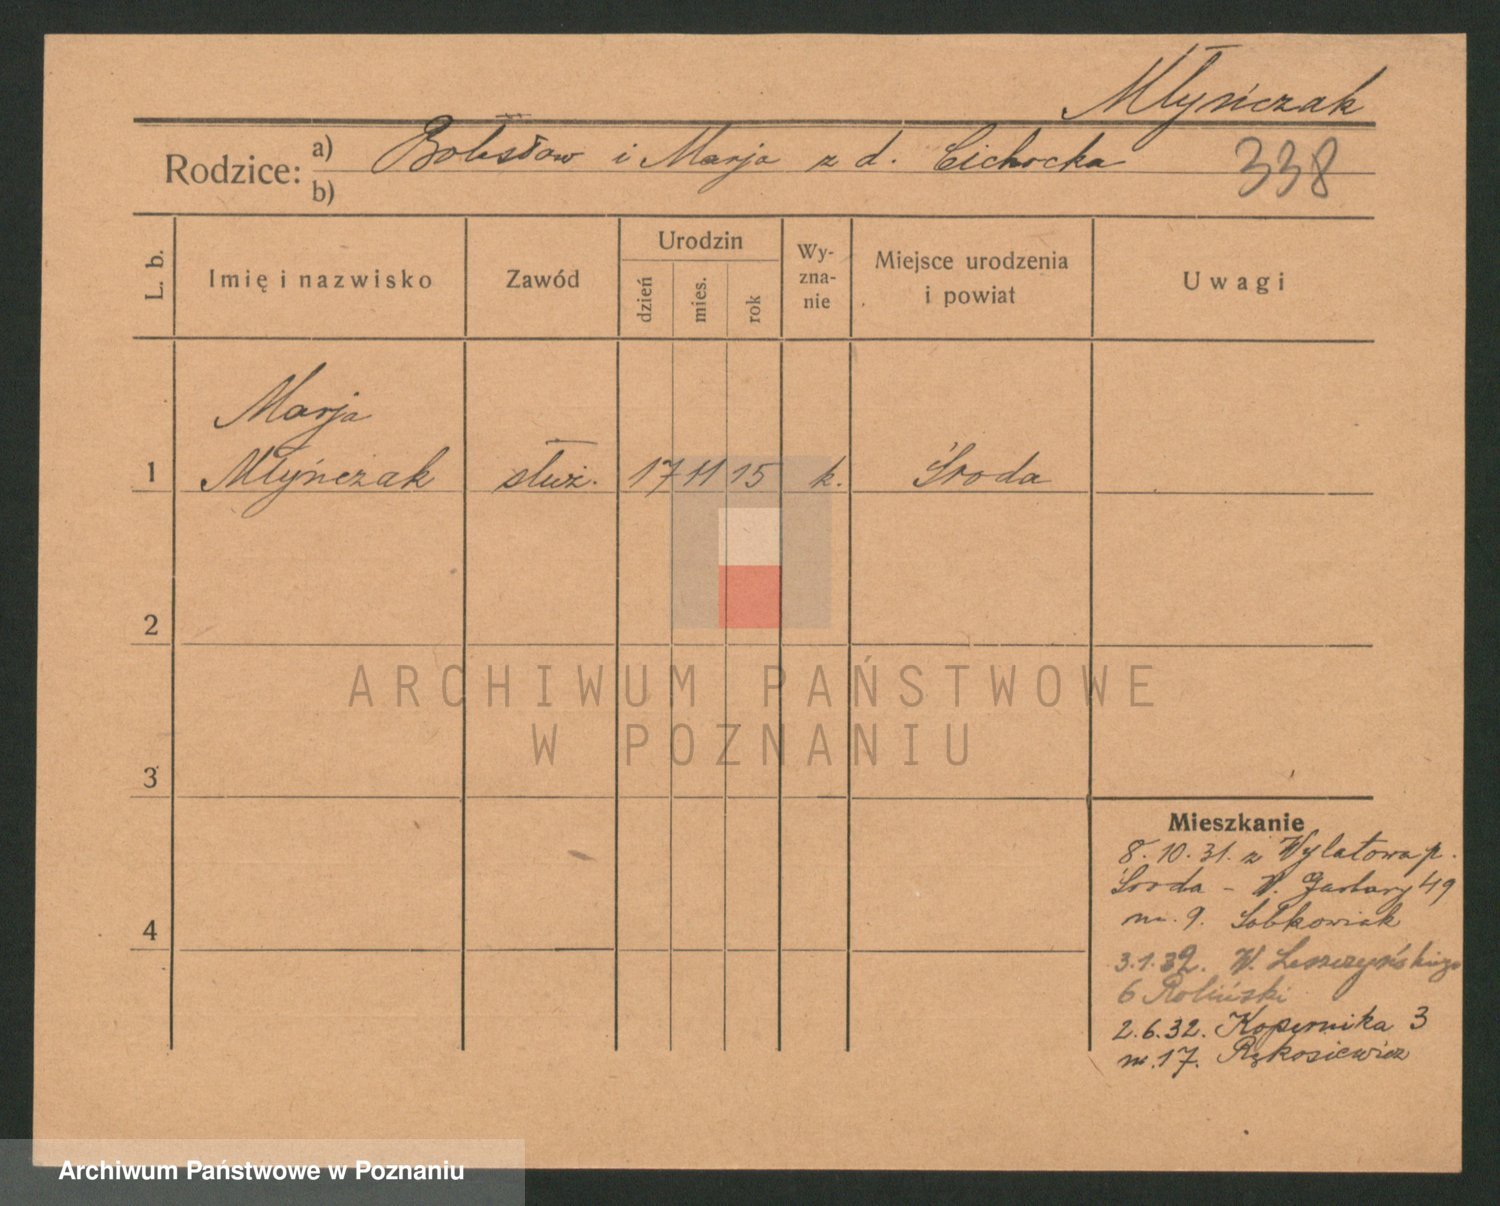 Młyńczak
Rodzice: a) Bolesław i Marja z d. Cichocka
b)
338
L. b.
Imię i nazwisko
Zawód
Urodzin
dzień
mies.
rok
Wy-
zna-
nie
Miejsce urodzenia
i powiat
Uwagi
Marja
1 Młyńczak służ. 17 11 15 k. Środa
2
3
4
Mieszkanie
8.10.31. z Wylatowa p.
Środa - W. Garbary 49
m. 9. Sobkowiak
3.1.32. W. Leszczyńskiego
6 Roliński
2.6.32. Kopernika 3
m. 17. Rękosiewicz
ARCHIWUM PAŃSTWOWE
W POZNANIU
Archiwum Państwowe w Poznaniu